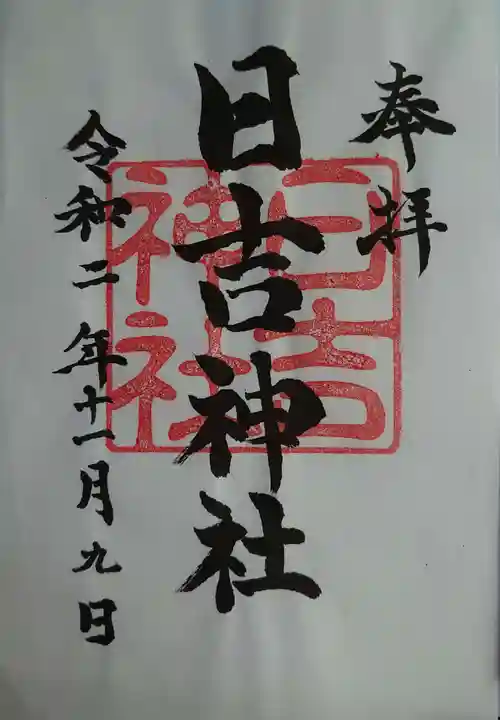 奉拝
日吉神社
日吉神社
令和二年十一月九日